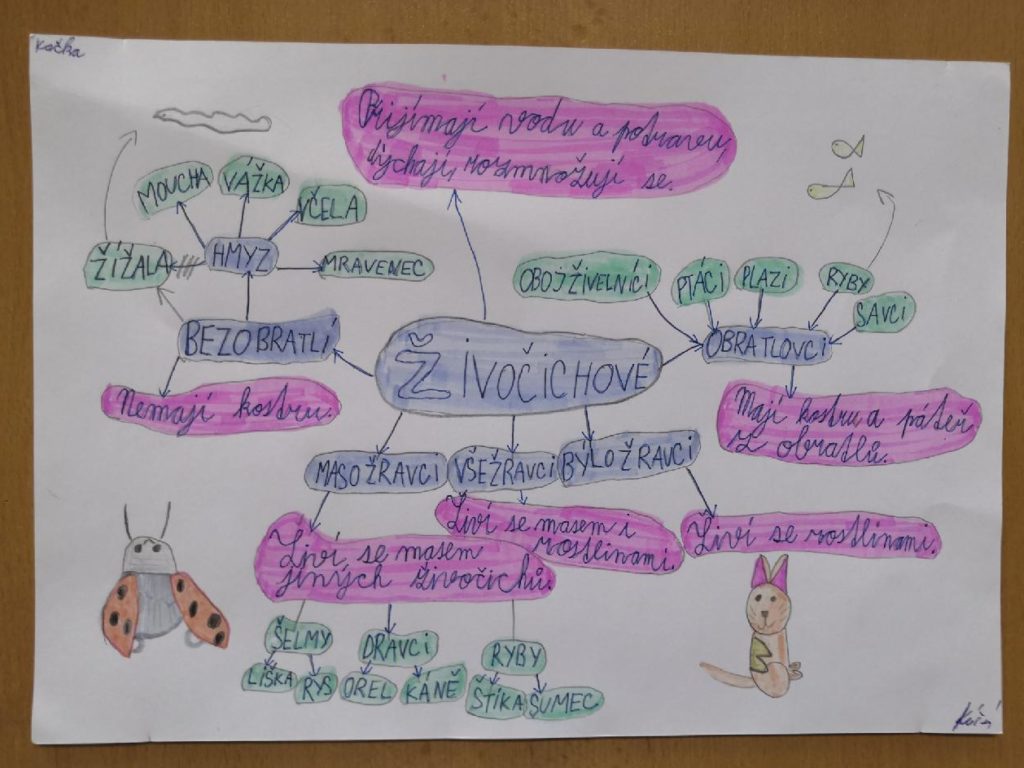 Kočka
Přijímají vodu a potravu,
dýchají, rozmnožují se.
MOUCHA
VÁŽKA
VČELA
ŽÍŽALA
HMYZ
MRAVENEC
BEZOBRATLÍ
Nemají kostru.
ŽIVOČICHOVÉ
OBOJŽIVELNÍCI
PTÁCI
PLAZI
RYBY
SAVCI
OBRATLOVCI
Mají kostru a páteř
z obratlů.
MASOŽRAVCI
VŠEŽRAVCI
BÝLOŽRAVCI
Živí se masem
jiných živočichů.
Živí se masem i
rostlinami.
Živí se rostlinami.
ŠELMY
DRAVCI
RYBY
LIŠKA
RYS
OREL
KÁNĚ
ŠTIKA
SUMEC